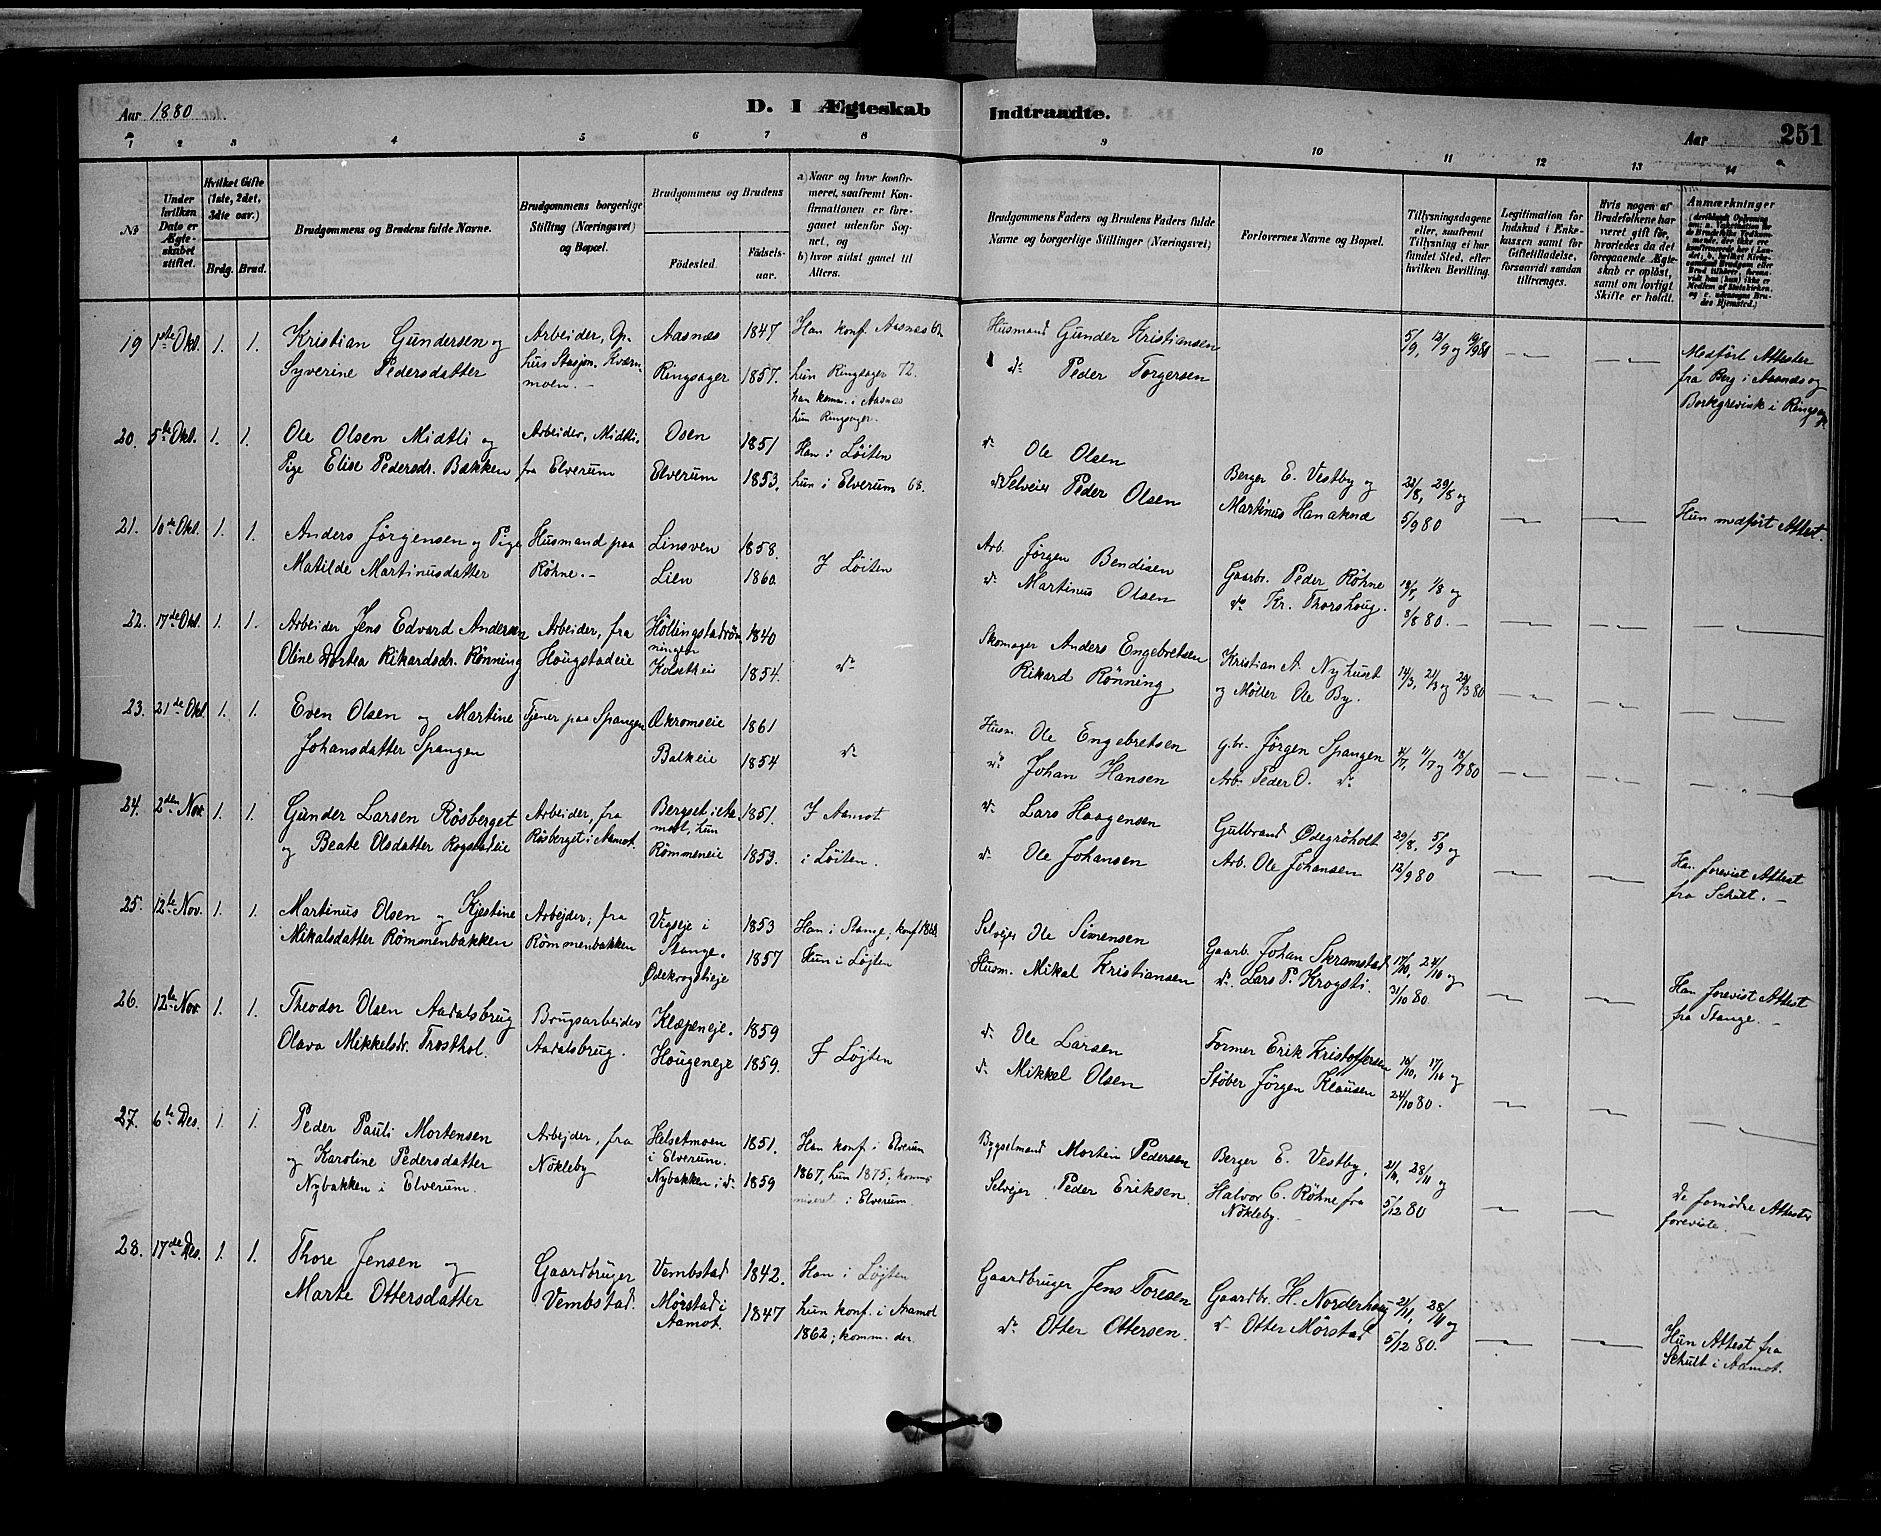 Aar 1880
D. I Ægteskab Indtraadte.
Aar
251
1 2 3 4 5 6 7 8 9 10 11 12 13 14
No
Under hvilken Dato er Ægteskabet stiftet.
Hvilket Gifte (1ste, 2det, 3die osv.)
Brdg. Brud.
Brudgommens og Brudens fulde Navne.
Brudgommens borgerlige Stilling (Næringsvei) og Bopæl.
Brudgommens og Brudens
Födested. Födselsaar.
a) Naar og hvor konfirmeret, saafremt Konfirmationen er foregaaet udenfor Sognet, og
b) hvor sidst gaaet til Alters.
Brudgommens Faders og Brudens Faders fulde Navne og borgerlige Stillinger (Næringsvei)
Forlovernes Navne og Bopæl.
Tillysningsdagene eller, saafremt Tillysning ei har fundet Sted, efter hvilken Bevilling.
Legitimation for Indskud i Enkekassen samt for Giftetilladelse, forsaavidt saadan tiltrænges.
Hvis nogen af Brudefolkene har været gift för, hvorledes da det foregaaende Ægteskab er oplöst, samt om lovligt Skifte er holdt.
Anmærkninger
19 1ste Okt. 1. 1. Kristian Gundersen og Arbeider, Op- Aasnæs 1847 Han konf. Aasnes 62 Husmand Gunder Kristiansen 5/9, 12/9 og 19/9 80 — — Medført Attester
Syverine Pedersdatter hus Stasjon. Kværn- Ringsager 1857. hun Ringsager 72. do Peder Torgersen fra Berg i Aasnæs og
moen.- han komm. i Aasnes Borkgrevink i Ringsag
hun Ringsager.
20. 5te Okt. 1. 1. Ole Olsen Midtli og Arbeider, Midtli. Osen 1851 Han i Löiten do Ole Olsen Berger E. Vestby og 22/8, 29/8 og
Pige Elise Pedersdr. Bakken fra Elverum Elverum 1853. hun i Elverum 68. Selveier Peder Olsen Martinus Hanaknd 5/9 80 — — Hun medført Attest.
21. 10de Okt. 1. 1. Anders Jörgensen og Pige Husmand paa Linsven 1858. I Löiten Arb. Jörgen Bendisen Gaarbr. Peder Röhne 1/8 og
Matilde Martinusdatter Röhne.- Lien 1860. do Martinus Olsen do Kr. Thorshoug. 8/8 80. — — —
22. 17de Okt. 1. 1. Arbeider Jens Edvard Andersen Arbeider, fra 1840 do Skomager Anders Engebretsen Kristian A. Nyhuset 14/3, 21/3 og 80
Oline Dortea Rikardsdr. Rönning Hougstadeie Kolsetheie 1854. Rikard Rönning og Möller Ole By. — — —
23. 21de Okt. 1. 1. Even Olsen og Martine Tjener paa Spangen Økromseie 1861 do Husm. Ole Engebretsen g.br. Jörgen Spangen 4/7, 11/7 og 18/7 80
Johansdatter Spangen Balkeie 1854 do Johan Hansen Arb. Peder O. do — — —
24. 2den Nov. 1. 1. Gunder Larsen Rösberget Arbeider, fra Bergset i Aa- 1851. I Aamot do Lars Haagensen Gulbrand Ødegröholt 29/8, 5/9 og
og Beate Olsdatter Rogstadeie Rösberget i Aamot. mot, hun Römmeneie 1853. i Löiten. do Ole Johansen Arb. Ole Johansen 12/9 80 — — Han forevist Attest
fra Schult.-
25. 12te Nov. 1. 1. Martinus Olsen og Kjestine Arbejder, fra Vigseje i 1853 Han i Stange, konf 1868 Selvejer Ole Simensen Gaarb. Johan Skramstad 17/10, 24/10 og
Mikalsdatter Römmenbakken Römmenbakken Stange. 1857 Hun i Löjten Husm. Mikal Kristiansen do Lars P. Krogsti. 31/10 80. — — Han forevist Attest
Ødekrogstieje fra Stange.-
26. 12te Nov. 1. 1. Theodor Olsen Aadalsbrug Brugsarbeider Klæpeneje. 1859 I Löjten do Ole Larsen Former Erik Kristoffersen 10/10, 17/10 og
Olava Mikkelsdr. Trosthol. Aadalsbrug. Hougeneje 1859. do Mikkel Olsen Stöber Jörgen Klausen 24/10 80. — — —
27. 6te Des. 1. 1. Peder Pauli Mortensen Arbejder, fra Helsetmoen 1851. Han konf. i Elverum Bygselmand Morten Pedersen Berger E. Vestby, 21/11, 28/11 og
og Karoline Pedersdatter Nökleby i Elverum. 1867, hun 1875, kommu- Selvejer Peder Eriksen Halvor C. Röhne fra 5/12 80 — — De fornødne Attester
Nybakken i Elverum. Nybakken i do 1859 niseret i Elverum. Nökleby. foreviste.-
28. 17de Des. 1. 1. Thore Jensen og Gaardbruger Vembstad 1842. Han i Löjten Gaardbruger Jens Toresen Gaardbr. H. Norderhoug 21/11, 28/11 og
Marte Ottersdatter Vembstad. Mörstad i 1847 hun konf. i Aamot do Otter Ottersen. do Otter Mörstad 5/12 80. — — Hun Attest fra
Aamot. 1862; komm. der. Schult i Aamot.